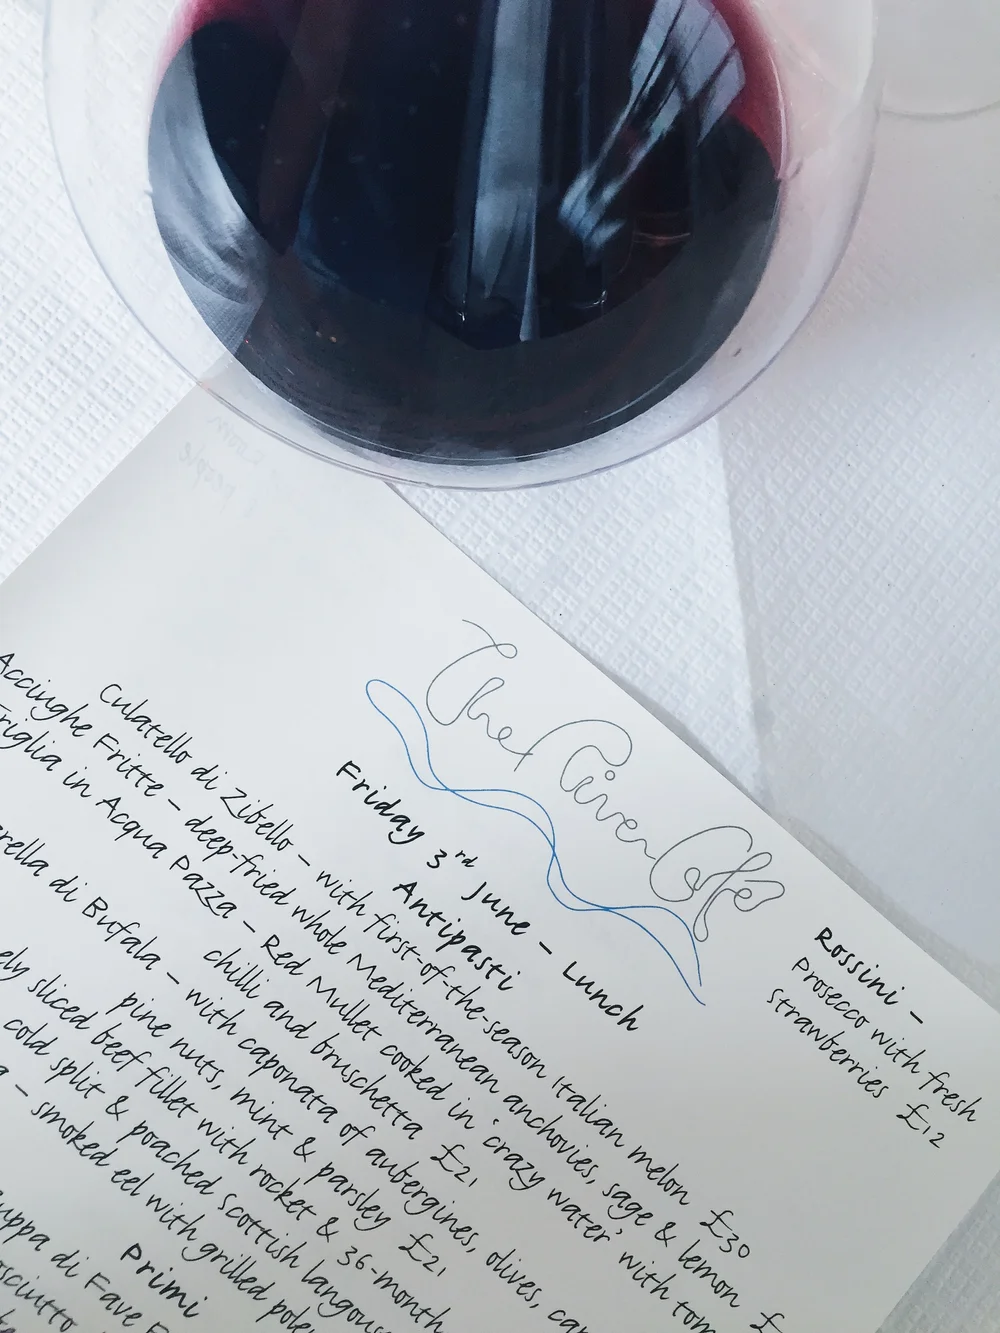 The River Café
Friday 3rd June - Lunch
Antipasti
Rossini -
Prosecco with fresh
strawberries £12
Culatello di Zibello - with first-of-the-season Italian melon £30
Acciughe Fritte - deep-fried whole Mediterranean anchovies, sage & lemon £
Triglia in Acqua Pazza - Red Mullet cooked in 'crazy water' with tom
chilli and bruschetta £21
rella di Bufala - with caponata of aubergines, olives, ca
pine nuts, mint & parsley £21
ely sliced beef fillet with rocket & 36-month
cold split & poached Scottish langous
- smoked eel with grilled pole
Primi
uppa di Fave
osciutto